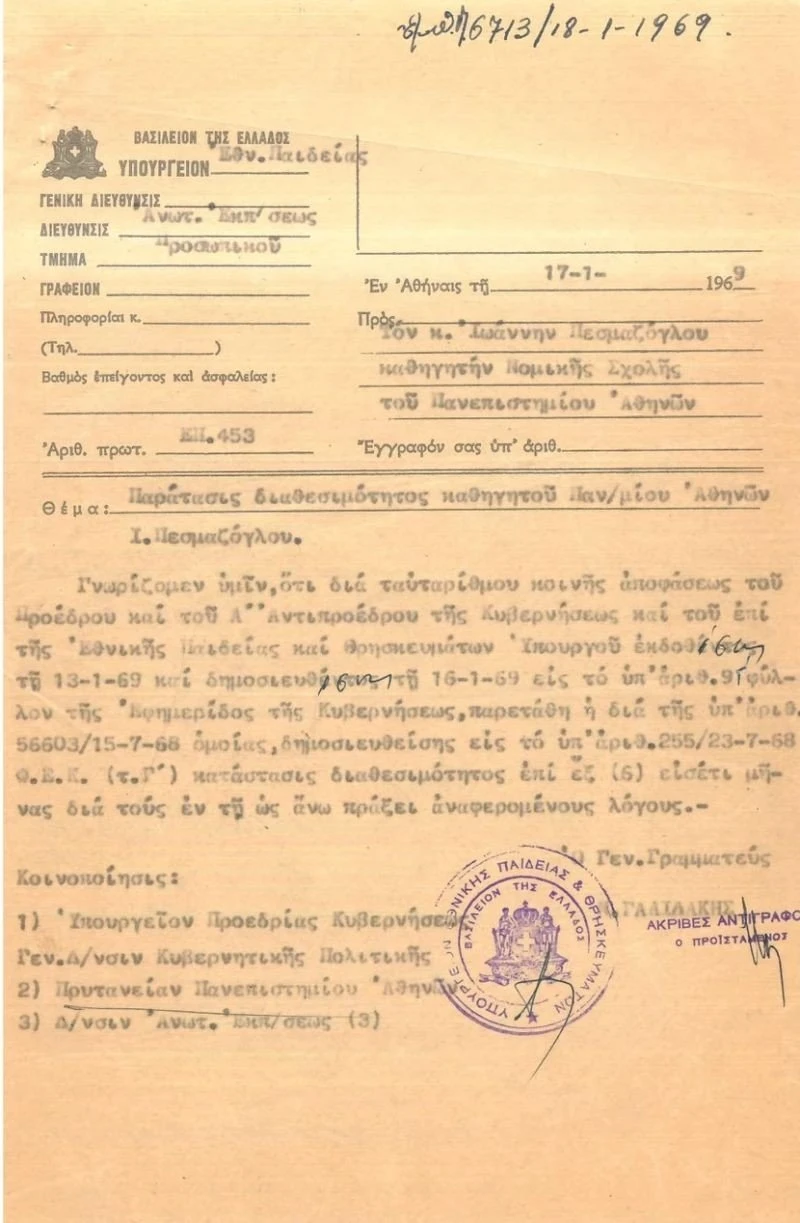 6713/18-1-1969.
ΒΑΣΙΛΕΙΟΝ ΤΗΣ ΕΛΛΑΔΟΣ
ΥΠΟΥΡΓΕΙΟΝ Ἐθν.Παιδείας
ΓΕΝΙΚΗ ΔΙΕΥΘΥΝΣΙΣ
ΔΙΕΥΘΥΝΣΙΣ Ἀνωτ. Ἐκπ/σεως
ΤΜΗΜΑ Προσωπικοῦ
ΓΡΑΦΕΙΟΝ
Πληροφορίαι κ.
(Τηλ. )
Βαθμὸς ἐπείγοντος καὶ ἀσφαλείας :
Ἀριθ. πρωτ. ΕΠ.453
Ἐν Ἀθήναις τῇ 17-1- 1969
Πρὸς
Τόν κ. Ἰωάννην Πεσμαζόγλου
καθηγητήν Νομικῆς Σχολῆς
τοῦ Πανεπιστημίου Ἀθηνῶν
Ἔγγραφόν σας ὑπ' ἀριθ.
Θέμα: Παράτασις διαθεσιμότητος καθηγητοῦ Παν/μίου Ἀθηνῶν
Ι.Πεσμαζόγλου.
Γνωρίζομεν ὑμῖν,ὅτι διά ταὐταρίθμου κοινῆς ἀποφάσεως τοῦ
Προέδρου καί τοῦ Α' Ἀντιπροέδρου τῆς Κυβερνήσεως καί τοῦ ἐπί
τῆς Ἐθνικῆς Παιδείας καί Θρησκευμάτων Ὑπουργοῦ ἐκδοθείσης
τῇ 13-1-69 καί δημοσιευθείσης τῇ 16-1-69 εἰς τό ὑπ'ἀριθ.9Γ φύλ-
λον τῆς Ἐφημερίδος τῆς Κυβερνήσεως,παρετάθη ἡ διά τῆς ὑπ'ἀριθ.
56603/15-7-68 ὁμοίας,δημοσιευθείσης εἰς τό ὑπ'ἀριθ.255/23-7-68
Φ.Ε.Κ. (τ.Γ') κατάστασις διαθεσιμότητος ἐπί ἕξ (6) εἰσέτι μῆ-
νας διά τούς ἐν τῇ ὡς ἄνω πράξει ἀναφερομένους λόγους.-
Ὁ Γεν.Γραμματεύς
Κοινοποίησις:
1) Ὑπουργεῖον Προεδρίας Κυβερνήσεως
Γεν.Δ/νσιν Κυβερνητικῆς Πολιτικῆς
2) Πρυτανείαν Πανεπιστημίου Ἀθηνῶν
3) Δ/νσιν Ἀνωτ. Ἐκπ/σεως (3)
ΥΠΟΥΡΓΕΙΟΝ ΕΘΝΙΚΗΣ ΠΑΙΔΕΙΑΣ & ΘΡΗΣΚΕΥΜΑΤΩΝ
ΒΑΣΙΛΕΙΟΝ ΤΗΣ ΕΛΛΑΔΟΣ
ΑΚΡΙΒΕΣ ΑΝΤΙΓΡΑΦΟ
Ο ΠΡΟΪΣΤΑΜΕΝΟΣ